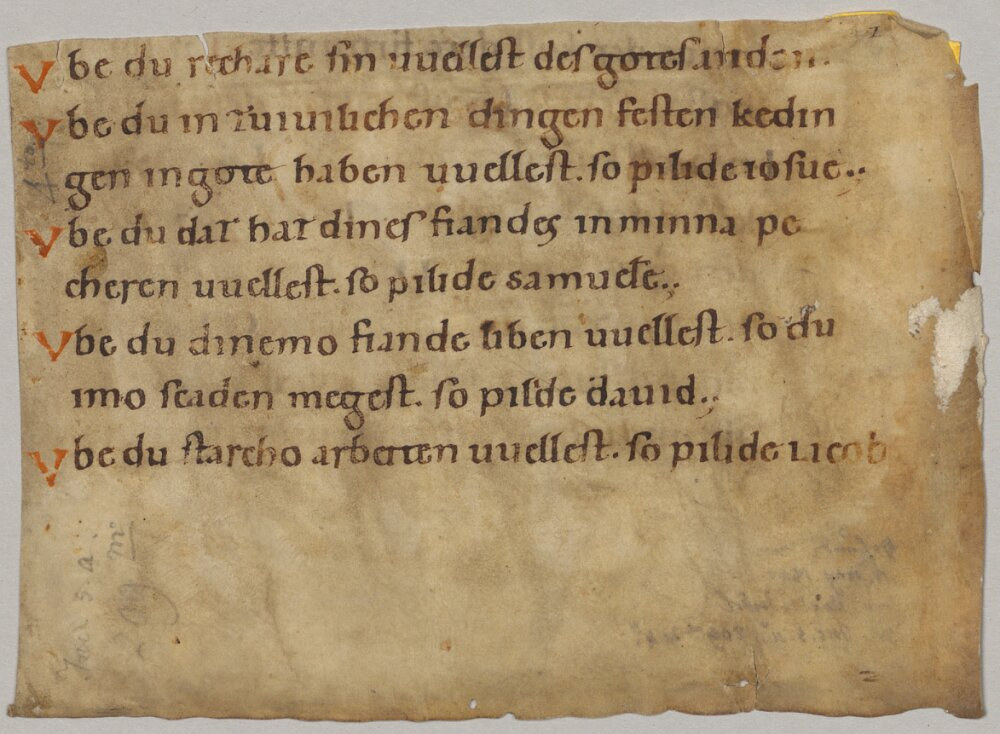 Vbe du rechare sin uuellest des gotes anden.
Vbe du in zuiuilichen dingen festen kedin
gen in gote haben uuellest. so pilide iosue..
Vbe du dar bar dines fiandes in minna pe
cheren uuellest. so pilide samuele.,
Vbe du dinemo fiande liben uuellest. so du
imo scaden megest. so pilide dauid.,
Vbe du starcho arbeiten uuellest. so pilide iacob